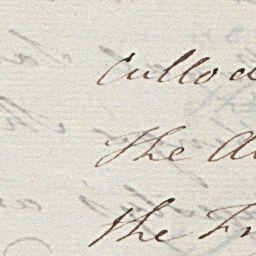 Cullod
The A
the Fr